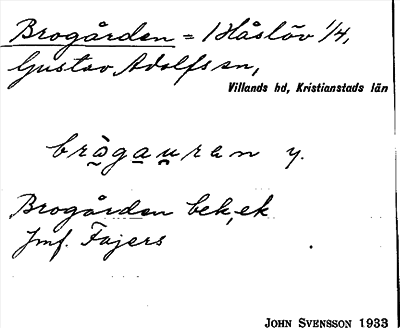 Brogården = 1 Håslöv 1/4,
Gustav Adolfs sn,
Villands hd, Kristianstads län
brågauren y.
Brogården bek, ek
Jmf. Fajers
JOHN SVENSSON 1933